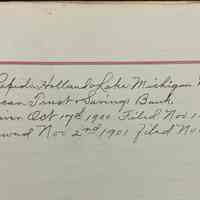 Rapids Holland & Lake Michigan
can Trust & Savings Bank
Oct 17th 1900 Filed Nov 1
Nov 2nd 1901 Filed No